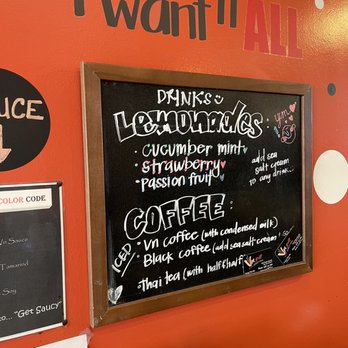 I want it ALL
DRINKS
Lemonades:
· cucumber mint
· strawberry
· passion fruit
add sea
salt cream
to any drink...
COFFEE:
ICED
· Vn coffee (with condensed milk)
· Black coffee (add sea salt cream + 50
· Thai tea (with half & half)
UCE
COLOR CODE
Vn Sauce
Tamarind
Soy
to... "Get Saucy"